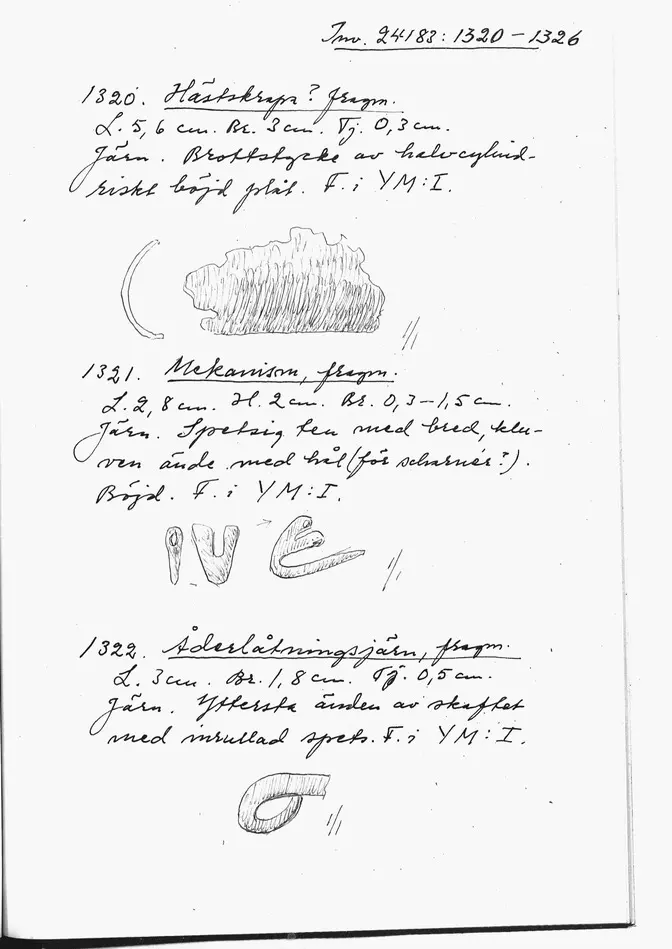 Inv. 24183:1320-1326
1320. Hästskrapa? fragm.
L. 5,6 cm. Br. 3 cm. Tj. 0,3 cm.
Järn. Brottstycke av halvcylind-
riskt böjd plåt. F. i YM:I.
1/1
1321. Mekanism, fragm.
L. 2,8 cm. H. 2 cm. Br. 0,3-1,5 cm.
Järn. Spetsig ten med bred, klu-
ven ände med hål (för scharnér?).
Böjd. F. i YM:I.
1/1
1322. Åderlåtningsjärn, fragm.
L. 3 cm. Br. 1,8 cm. Tj. 0,5 cm.
Järn. Yttersta änden av skaftet
med inrullad spets. F. i YM:I.
1/1